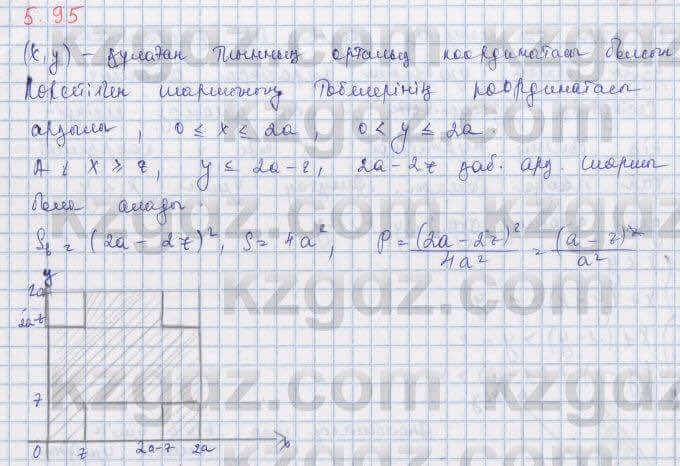 5.95
(x, y) – құлаған тиынның орталық координатасы болсын
Көрсетілген шаршының төбелерінің координатасы
арқылы, 0 ≤ x ≤ 2a, 0 < y ≤ 2a.
A : x ≥ r, y ≤ 2a-r, 2a-2r қаб. арқ. шаршы
бола алады.
S_б = (2a - 2r)², S = 4a², P = (2a - 2r)²/4a² = (a - r)²/a²
y
2a
2a-r
r
0 r 2a-r 2a x
kzgdz.com
kzgdz.com
kzgdz.com
kzgdz.com